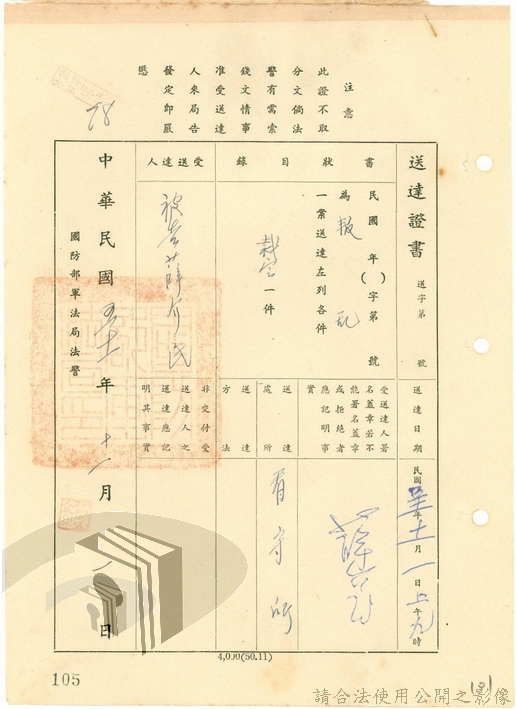 注意
此證不取
分文倘法
警有需索
錢文情事
准受送達
人來局告
發定即嚴
懲
78
送達證書
送字第 號
送達日期
民國 年十一月一日上午九時
書狀
民國 年( )字第 號
為叛亂
一案送達左列各件
受送達人署
名蓋章若不
能署名蓋章
或拒絕者
應記明事
實
目錄
裁定一件
送達處所
看守所
送達方法
受送達人
被告薛介民
非交付受
送達人之
送達應記
明其事實
中華民國五十一年十一月一日
國防部軍法局法警
4,000(50.11)
105
181
請合法使用公開之影像